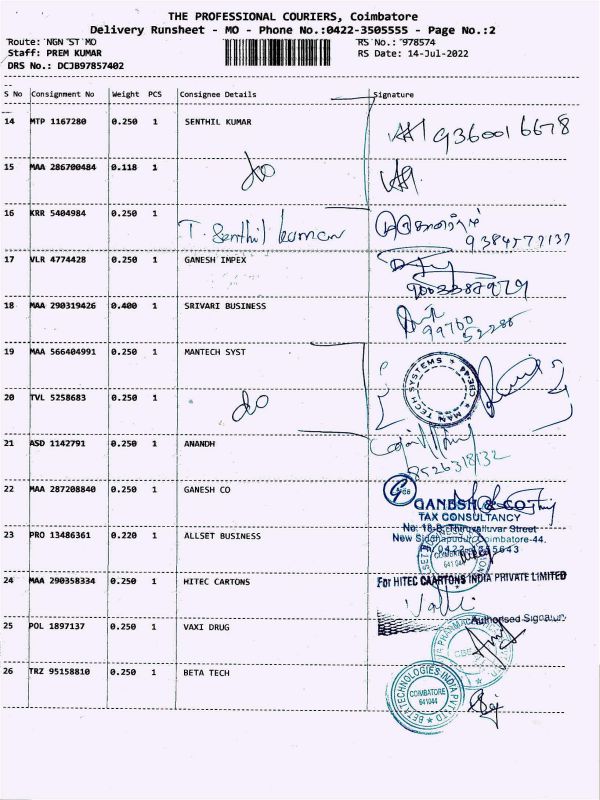 THE PROFESSIONAL COURIERS, Coimbatore
Delivery Runsheet - MO - Phone No.:0422-3505555 - Page No.:2
Route: NGN ST MO RS No.: 978574
Staff: PREM KUMAR RS Date: 14-Jul-2022
DRS No.: DCJB97857402
S No Consignment No Weight PCS Consignee Details Signature
14 MTP 1167280 0.250 1 SENTHIL KUMAR
9360016678
15 MAA 286700484 0.118 1 do
16 KRR 5404984 0.250 1 T. Senthil kumar
9384577137
17 VLR 4774428 0.250 1 GANESH IMPEX
18 MAA 290319426 0.400 1 SRIVARI BUSINESS
99760
52286
19 MAA 566404991 0.250 1 MANTECH SYST
MAN TECH SYSTEMS ★ CBE-44 ★
20 TVL 5258683 0.250 1 do
21 ASD 1142791 0.250 1 ANANDH
8526318132
22 MAA 287208840 0.250 1 GANESH CO
GANESH & CO
TAX CONSULTANCY
No: 18-B, Thiruvalluvar Street
New Siddhapudur, Coimbatore-44.
23 PRO 13486361 0.220 1 ALLSET BUSINESS
COIMBATORE
641 044
24 MAA 290358334 0.250 1 HITEC CARTONS
For HITEC CAARTONS INDIA PRIVATE LIMITED
Valli
Authorised Signatory
25 POL 1897137 0.250 1 VAXI DRUG
26 TRZ 95158810 0.250 1 BETA TECH
BETA TECHNOLOGIES INDIA PVT LTD ★
COIMBATORE
641044